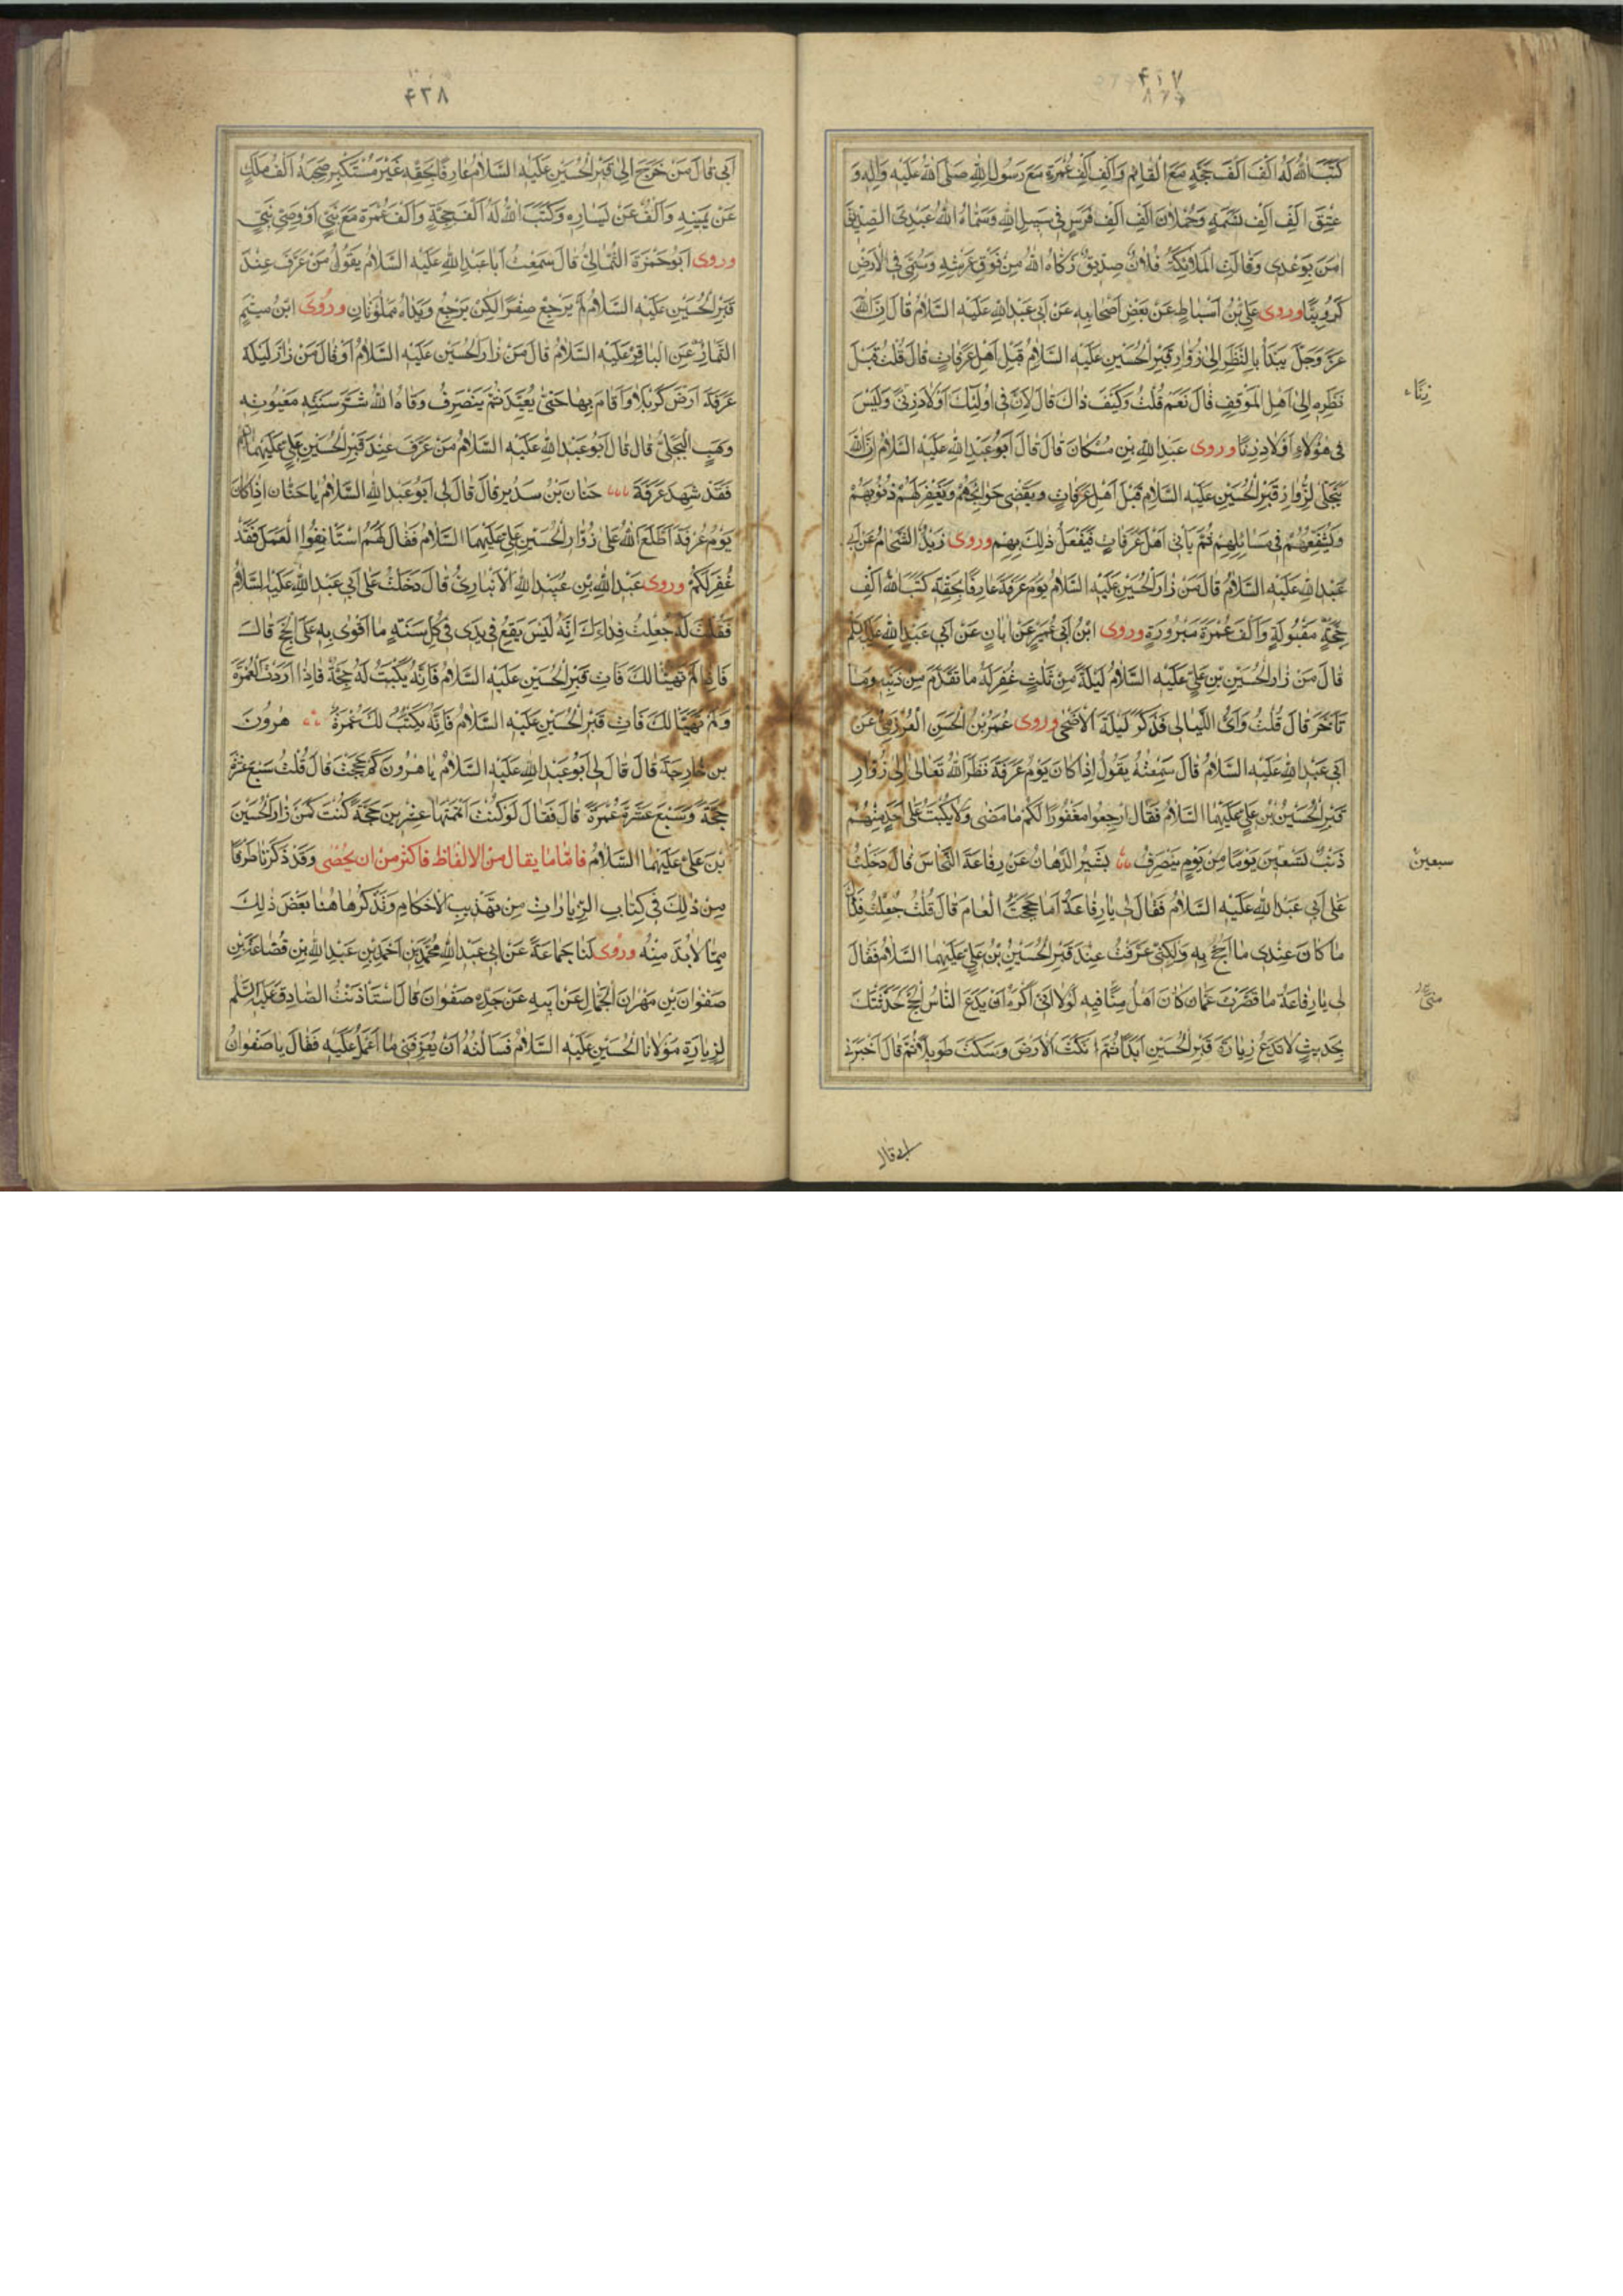 ۴۱۷
۸۲۶
كَتَبَ اللهُ لَهُ اَلْفَ اَلْفِ حَجَّةٍ مَعَ الْقَائِمِ وَاَلْفَ اَلْفِ عُمْرَةٍ مَعَ رَسُولِ اللهِ صَلَّى اللهُ عَلَيْهِ وَاٰلِهِ وَ
عِتْقَ اَلْفِ اَلْفِ نَسَمَةٍ وَحُمْلَانَ اَلْفِ اَلْفِ فَرَسٍ فِى سَبِيلِ اللهِ وَسَمَّاهُ اللهُ عَبْدِىَ الصِّدِّيقَ
امَنَ بِوَعْدِى وَقَالَتِ الْمَلَائِكَةُ فُلَانٌ صِدِّيقٌ زَكَّاهُ اللهُ مِنْ فَوْقِ عَرْشِهِ وَسُمِّىَ فِى الْاَرْضِ
كَرُوبِيًّا وروى عَلِىُّ بْنُ اَسْبَاطٍ عَنْ بَعْضِ اَصْحَابِهِ عَنْ اَبِى عَبْدِ اللهِ عَلَيْهِ السَّلَامُ قَالَ اِنَّ اللهَ
عَزَّ وَجَلَّ يَبْدَأُ بِالنَّظَرِ اِلٰى زُوَّارِ قَبْرِ الْحُسَيْنِ عَلَيْهِ السَّلَامُ قَبْلَ اَهْلِ عَرَفَاتٍ قَالَ قُلْتُ قَبْلَ
نَظَرِهِ اِلٰى اَهْلِ الْمَوْقِفِ قَالَ نَعَمْ قُلْتُ وَكَيْفَ ذَاكَ قَالَ لِاَنَّ فِى اُولٰئِكَ اَوْلَادَ زِنًى وَلَيْسَ
زِنَاء
فِى هٰؤُلَاءِ اَوْلَادُ زِنًا وروى عَبْدُ اللهِ بْنُ مُسْكَانَ قَالَ قَالَ اَبُو عَبْدِ اللهِ عَلَيْهِ السَّلَامُ اِنَّ اللهَ
يَتَجَلّٰى لِزُوَّارِ قَبْرِ الْحُسَيْنِ عَلَيْهِ السَّلَامُ قَبْلَ اَهْلِ عَرَفَاتٍ وَيَقْضِى حَوَائِجَهُمْ وَيَغْفِرُ لَهُمْ ذُنُوبَهُمْ
وَيُشَفِّعُهُمْ فِى مَسَائِلِهِمْ ثُمَّ يَأْتِى اَهْلَ عَرَفَاتٍ فَيَفْعَلُ ذٰلِكَ بِهِمْ وروى زَيْدٌ الشَّحَّامُ عَنْ اَبِى
عَبْدِ اللهِ عَلَيْهِ السَّلَامُ قَالَ مَنْ زَارَ الْحُسَيْنَ عَلَيْهِ السَّلَامُ يَوْمَ عَرَفَةَ عَارِفًا بِحَقِّهِ كَتَبَ اللهُ اَلْفَ
حَجَّةٍ مَقْبُولَةٍ وَاَلْفَ عُمْرَةٍ مَبْرُورَةٍ وروى ابْنُ اَبِى عُمَيْرٍ عَنْ اَبَانٍ عَنْ اَبِى عَبْدِ اللهِ عَلَيْهِ السَّلَامُ
قَالَ مَنْ زَارَ الْحُسَيْنَ بْنَ عَلِىٍّ عَلَيْهِ السَّلَامُ لَيْلَةً مِنْ ثَلَثٍ غُفِرَ لَهُ مَا تَقَدَّمَ مِنْ ذَنْبِهِ وَمَا
تَاَخَّرَ قَالَ قُلْتُ وَاَىُّ اللَّيَالِى فَذَكَرَ لَيْلَةَ الْاَضْحٰى وروى عُمَرُ بْنُ الْحَسَنِ الْعَرْزَمِىُّ عَنْ
اَبِى عَبْدِ اللهِ عَلَيْهِ السَّلَامُ قَالَ سَمِعْتُهُ يَقُولُ اِذَا كَانَ يَوْمُ عَرَفَةَ نَظَرَ اللهُ تَعَالٰى اِلٰى زُوَّارِ
قَبْرِ الْحُسَيْنِ بْنِ عَلِىٍّ عَلَيْهِمَا السَّلَامُ فَقَالَ ارْجِعُوا مَغْفُورًا لَكُمْ مَا مَضٰى وَلَا يُكْتَبُ عَلٰى اَحَدٍ مِنْهُمْ
ذَنْبٌ تِسْعِينَ يَوْمًا مِنْ يَوْمِ يَنْصَرِفُ بَشِيرٌ الدَّهَّانُ عَنْ رِفَاعَةَ النَّخَّاسِ قَالَ دَخَلْتُ
سبعين
عَلٰى اَبِى عَبْدِ اللهِ عَلَيْهِ السَّلَامُ فَقَالَ لِى يَا رِفَاعَةُ اَمَا حَجَجْتَ الْعَامَ قَالَ قُلْتُ جُعِلْتُ فِدَاكَ
مَا كَانَ عِنْدِى مَا اَحُجُّ بِهِ وَلٰكِنِّى عَرَّفْتُ عِنْدَ قَبْرِ الْحُسَيْنِ بْنِ عَلِىٍّ عَلَيْهِمَا السَّلَامُ فَقَالَ
لِى يَا رِفَاعَةُ مَا قَصَّرْتَ عَمَّا كَانَ اَهْلُ مِنًى فِيهِ لَوْلَا اَنِّى اَكْرَهُ اَنْ يَدَعَ النَّاسُ الْحَجَّ لَحَدَّثْتُكَ
بِحَدِيثٍ لَا تَدَعُ زِيَارَةَ قَبْرِ الْحُسَيْنِ اَبَدًا ثُمَّ نَكَتَ الْاَرْضَ وَسَكَتَ طَوِيلًا ثُمَّ قَالَ اَخْبَرَنِى
ابى قال
۴۲۸
اَبِى قَالَ مَنْ خَرَجَ اِلٰى قَبْرِ الْحُسَيْنِ عَلَيْهِ السَّلَامُ عَارِفًا بِحَقِّهِ غَيْرَ مُسْتَكْبِرٍ صَحِبَهُ اَلْفُ مَلَكٍ
عَنْ يَمِينِهِ وَاَلْفٌ عَنْ يَسَارِهِ وَكَتَبَ اللهُ لَهُ اَلْفَ حَجَّةٍ وَاَلْفَ عُمْرَةٍ مَعَ نَبِىٍّ اَوْ وَصِىِّ نَبِىٍّ
وروى اَبُو حَمْزَةَ الثُّمَالِىُّ قَالَ سَمِعْتُ اَبَا عَبْدِ اللهِ عَلَيْهِ السَّلَامُ يَقُولُ مَنْ عَرَّفَ عِنْدَ
قَبْرِ الْحُسَيْنِ عَلَيْهِ السَّلَامُ لَمْ يَرْجِعْ صِفْرًا لٰكِنْ يَرْجِعُ وَيَدَاهُ مَمْلُوَّتَانِ وَرُوِىَ ابْنُ مِيثَمٍ
التَّمَّارُ عَنِ الْبَاقِرِ عَلَيْهِ السَّلَامُ قَالَ مَنْ زَارَ الْحُسَيْنَ عَلَيْهِ السَّلَامُ اَوْ قَالَ مَنْ زَارَ لَيْلَةَ
عَرَفَةَ اَرْضَ كَرْبَلَا وَاَقَامَ بِهَا حَتّٰى يُعَيِّدَ ثُمَّ يَنْصَرِفُ وَقَاهُ اللهُ شَرَّ سَنَتِهِ
وَهْبٍ الْبَجَلِىِّ قَالَ قَالَ اَبُو عَبْدِ اللهِ عَلَيْهِ السَّلَامُ مَنْ عَرَّفَ عِنْدَ قَبْرِ الْحُسَيْنِ بْنِ عَلِىٍّ عَلَيْهِمَا السَّلَامُ
فَقَدْ شَهِدَ عَرَفَةَ حَنَانُ بْنُ سَدِيرٍ قَالَ قَالَ لِى اَبُو عَبْدِ اللهِ السَّلَامُ يَا حَنَّانُ اِذَا كَانَ
يَوْمُ عَرَفَةَ اطَّلَعَ اللهُ عَلٰى زُوَّارِ الْحُسَيْنِ بْنِ عَلِىٍّ عَلَيْهِمَا السَّلَامُ فَقَالَ لَهُمُ اسْتَانِفُوا الْعَمَلَ فَقَدْ
غُفِرَ لَكُمْ وروى عَبْدُ اللهِ بْنُ عُبَيْدِ اللهِ الْاَنْبَارِىُّ قَالَ دَخَلْتُ عَلٰى اَبِى عَبْدِ اللهِ عَلَيْهِ السَّلَامُ
فَقُلْتُ لَهُ جُعِلْتُ فِدَاءَكَ اِنَّهُ لَيْسَ يَقَعُ فِى يَدِى فِى كُلِّ سَنَةٍ مَا اَقْوٰى بِهِ عَلَى الْحَجِّ قَالَ
فَاِذَا لَمْ تَهَيَّأْ لَكَ فَأْتِ قَبْرَ الْحُسَيْنِ عَلَيْهِ السَّلَامُ فَاِنَّهُ يُكْتَبُ لَهُ حَجَّةٌ فَاِذَا اَرَدْتَ الْعُمْرَةَ
وَلَمْ تَهَيَّأْ لَكَ فَأْتِ قَبْرَ الْحُسَيْنِ عَلَيْهِ السَّلَامُ فَاِنَّهُ يُكْتَبُ لَكَ عُمْرَةٌ هٰرُونَ
بْنِ خَارِجَةَ قَالَ قَالَ لِى اَبُو عَبْدِ اللهِ عَلَيْهِ السَّلَامُ يَا هٰرُونُ كَمْ حَجَجْتَ قَالَ قُلْتُ سَبْعَ عَشْرَةَ
حَجَّةً وَسَبْعَ عَشْرَةَ عُمْرَةً قَالَ فَقَالَ لَوْ كُنْتَ اَتْمَمْتَهَا عِشْرِينَ حَجَّةً كُنْتَ كَمَنْ زَارَ الْحُسَيْنَ
بْنَ عَلِىٍّ عَلَيْهِمَا السَّلَامُ فَامَّا مَا يُقَالُ مِنَ الْاَلْفَاظِ فَاَكْثَرُ مِنْ اَنْ يُحْصٰى وَقَدْ ذَكَرْنَا طَرَفًا
مِنْ ذٰلِكَ فِى كِتَابِ الزِّيَارَاتِ مِنْ تَهْذِيبِ الْاَحْكَامِ وَنَذْكُرُ هَاهُنَا بَعْضَ ذٰلِكَ
مِمَّا لَابُدَّ مِنْهُ وَرَوٰى لَنَا جَمَاعَةٌ عَنْ اَبِى عَبْدِ اللهِ مُحَمَّدِ بْنِ اَحْمَدَ بْنِ عَبْدِ اللهِ بْنِ قُضَاعَةَ بْنِ
صَفْوَانَ بْنِ مِهْرَانَ الْجَمَّالِ عَنْ اَبِيهِ عَنْ جَدِّهِ صَفْوَانَ قَالَ اسْتَأْذَنْتُ الصَّادِقَ عَلَيْهِ السَّلَمُ
لِزِيَارَةِ مَوْلَانَا الْحُسَيْنِ عَلَيْهِ السَّلَامُ فَسَاَلْتُهُ اَنْ يُعَرِّفَنِى مَا اَعْمَلُ عَلَيْهِ فَقَالَ يَا صَفْوَانُ